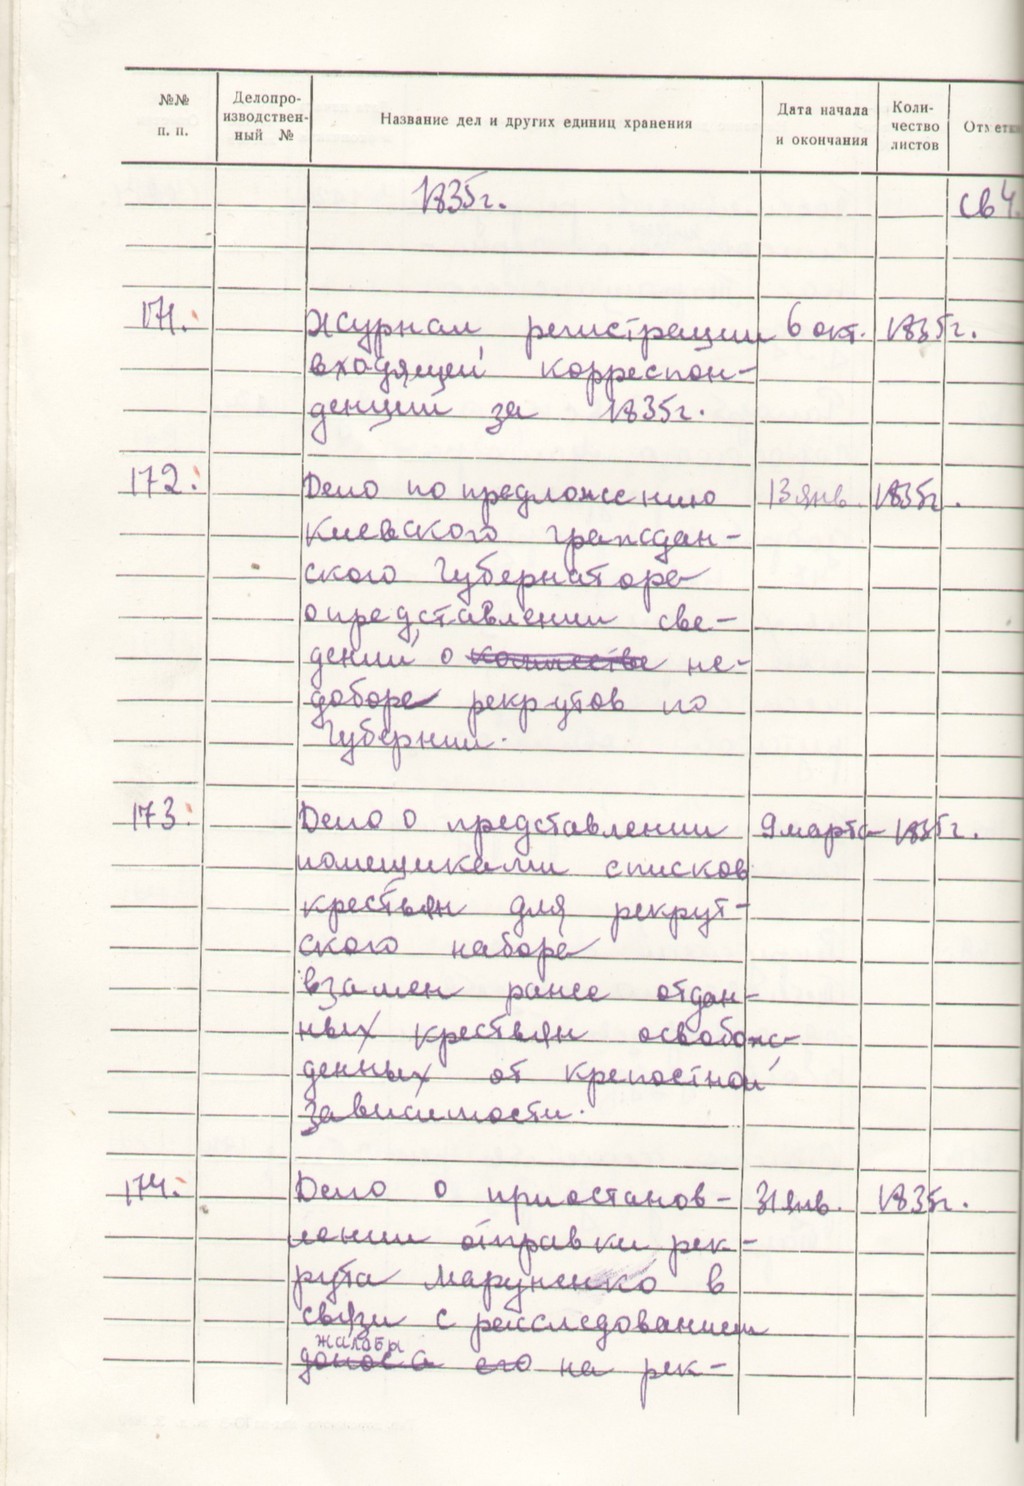 №№ п. п.
Делопро-изводствен-ный №
Название дел и других единиц хранения
Дата начала и окончания
Коли-чество листов
Отметки
1835г. св 4.
171. Журнал регистрации 6 окт. 1835г.
входящей корреспон-
денций за 1835г.
172. Дело по предложению 13 янв. 1835г.
Киевского граждан-
ского Губернатора
о представлении све-
дений о количестве не-
доборе рекрутов по
Губернии.
173. Дело о представлении 9 марта 1835г.
помещиками списков
крестьян для рекрут-
ского набора
взамен ранее отдан-
ных крестьян освобож-
денных от крепостной
зависимости.
174. Дело о приостанов- 31 янв. 1835г.
лении отправки рек-
рута Маруненко в
связи с расследованием
жалобы
доноса его на рек-